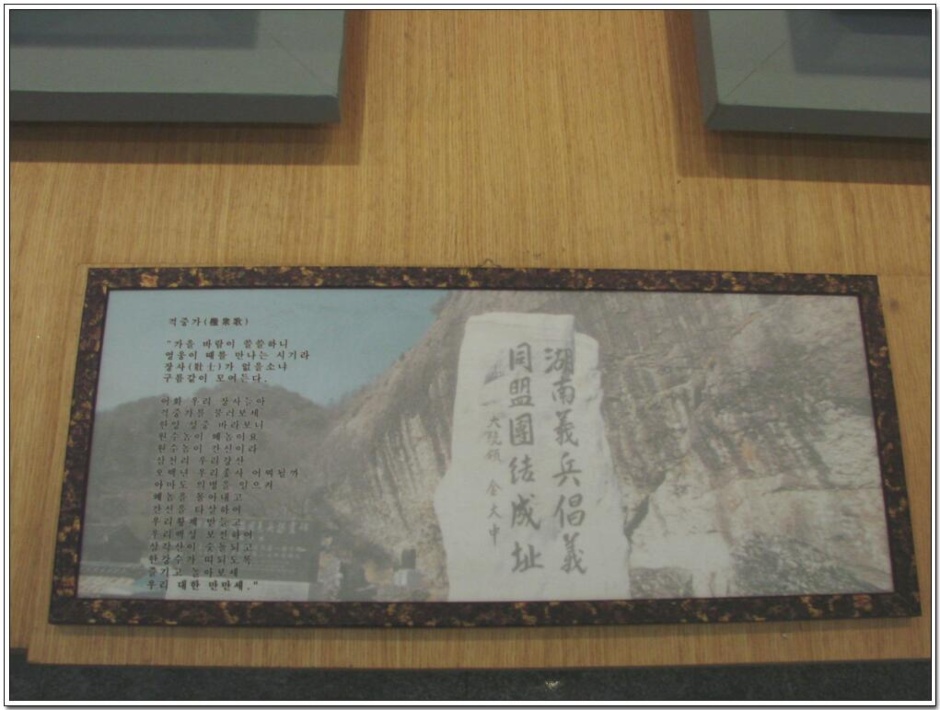 격중가(激衆歌)
"가을 바람이 쓸쓸하니
영웅이 때를 만나는 시기라
장사(壯士)가 없을소냐
구름같이 모여든다.
어화 우리 장사들아
격중가를 불러보세
한양 성중 바라보니
원수놈이 왜놈이요
원수놈이 간신이라
삼천리 우리강산
오백년 우리종사 어찌할까
아마도 의병을 일으켜
왜놈을 몰아내고
간신을 타살하여
우리황제 만들고
우리백성 보전하여
삼각산이 숫돌되고
한강수가 띠되도록
즐기고 놀아보세
우리 대한 만만세."
湖南義兵倡義
同盟團結成址
大統領 金大中